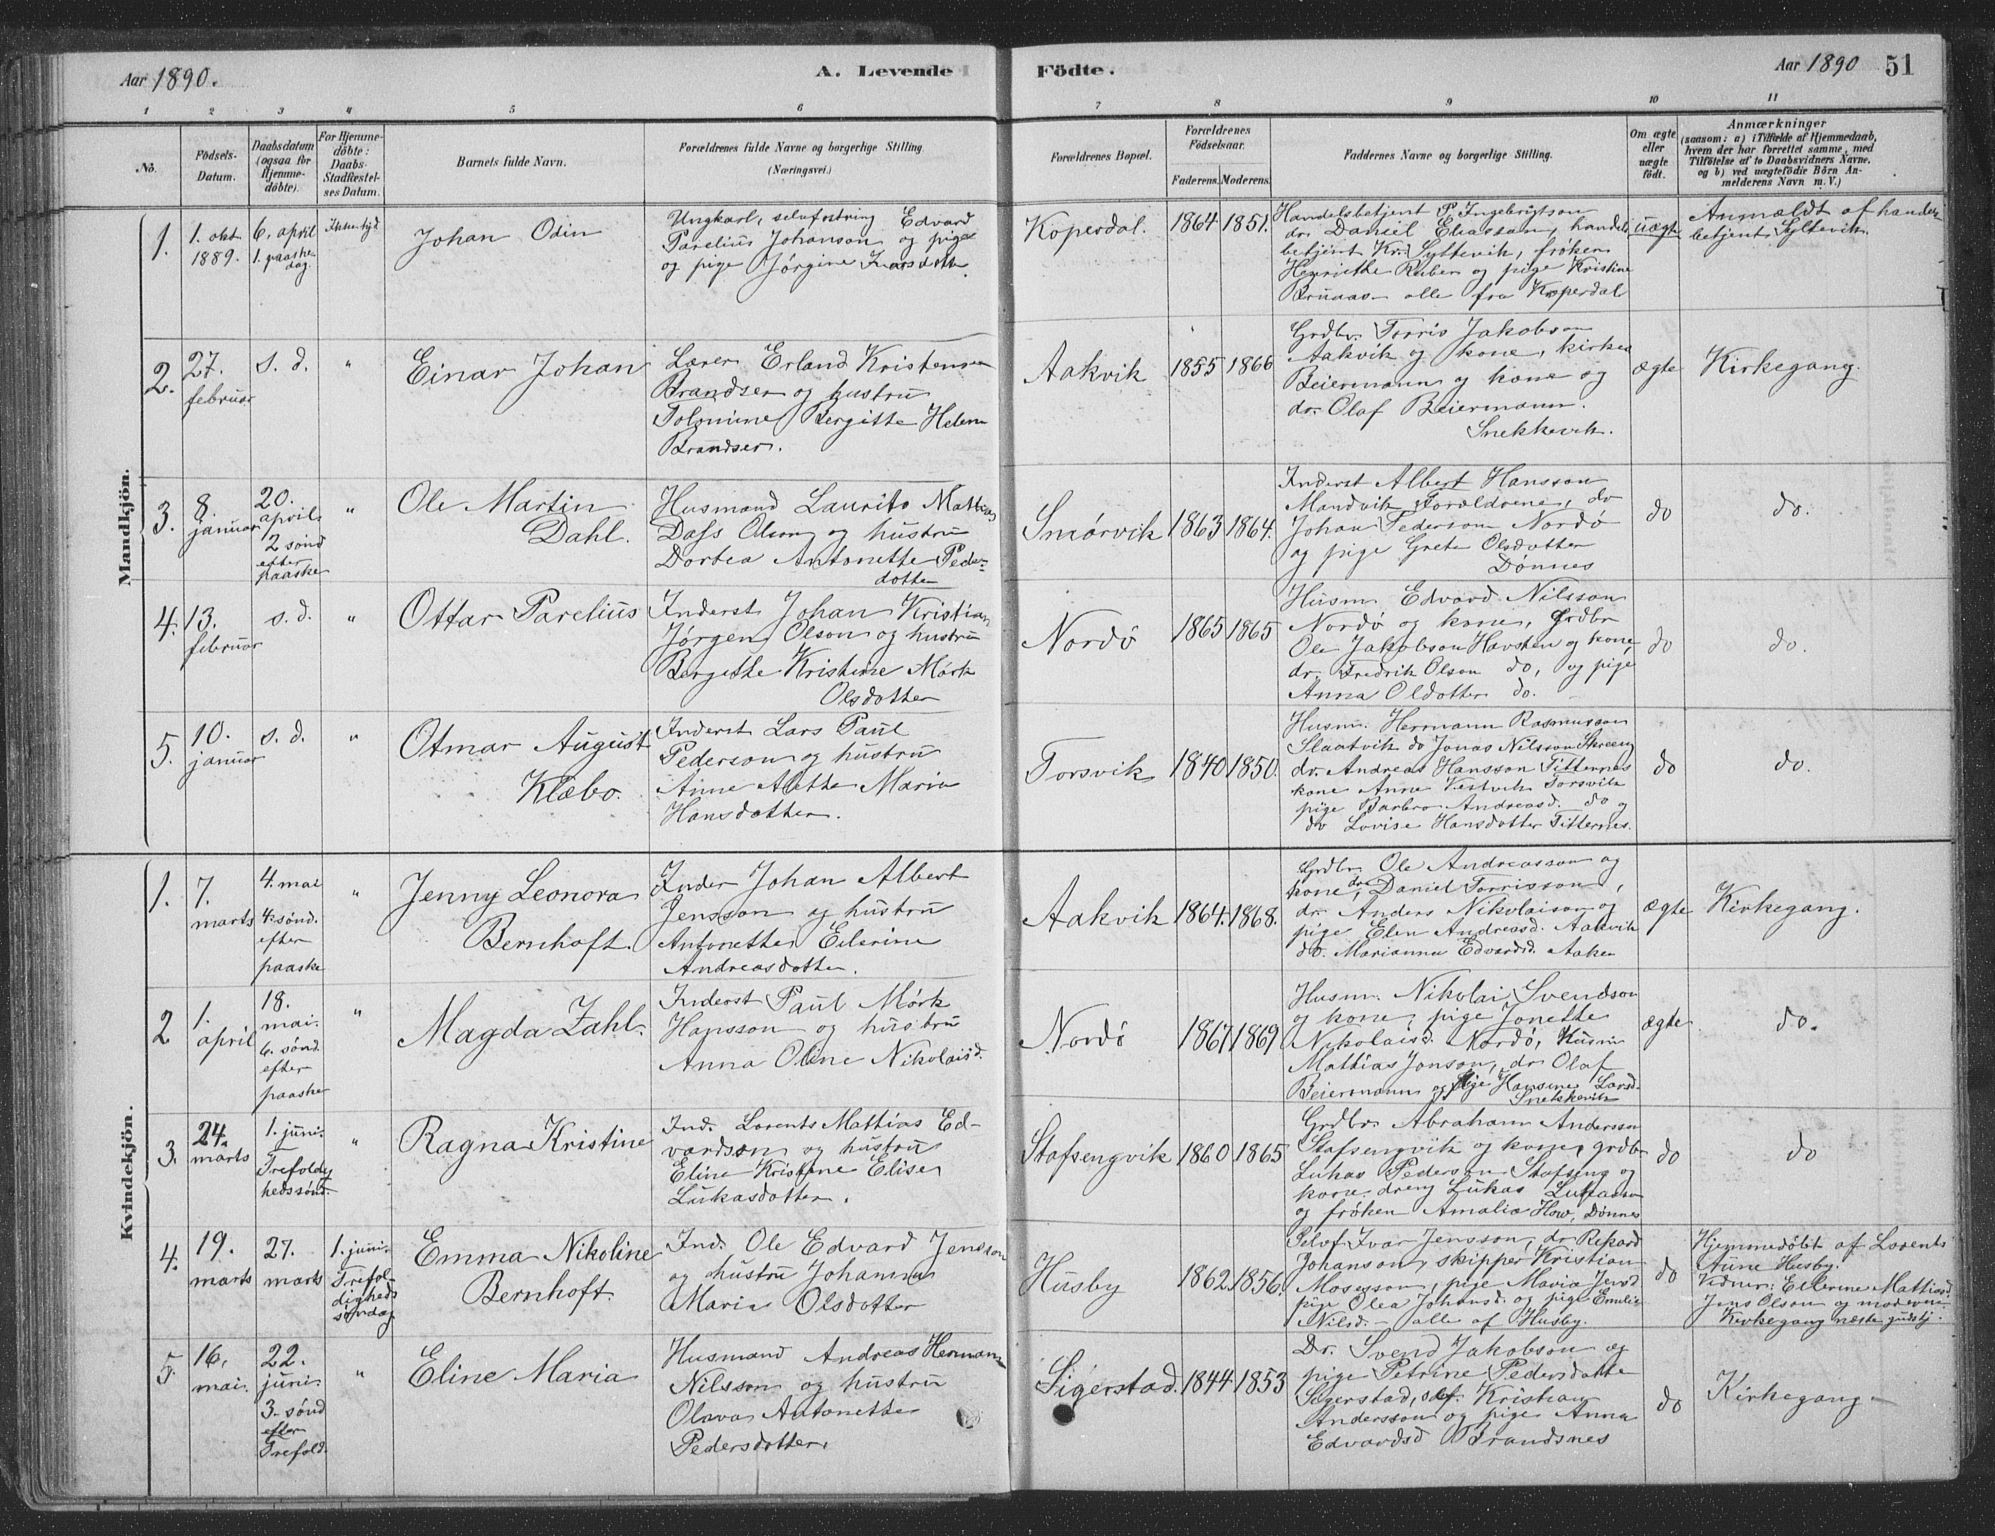 Aar 1890.
A. Levende
Födte.
Aar 1890
51
1 2 3 4 5 6 7 8 9 10 11
No.
Födsels-
Datum.
Daabsdatum
(ogsaa for
Hjemme-
döbte).
For Hjemme-
döbte:
Daabs-
Stadfæstel-
ses Datum.
Barnets fulde Navn.
Forældrenes fulde Navne og borgerlige Stilling
(Næringsvei.)
Forældrenes Bopæl.
Forældrenes
Födselsaar.
Faderens.
Moderens.
Faddernes Navne og borgerlige Stilling.
Om ægte
eller
uægte
födt.
Anmærkninger
(saasom: a) i Tilfælde af Hjemmedaab,
hvem der har forrettet samme, med
Tilföielse af to Daabsvidners Navne.
og b) ved uægtefödte Börn An-
melderens Navn m. V.)
Mandkjön.
1.
1. okt
1889.
6. april
1. paaske
dag.
Johan Odin
Ungkarl, Edvard
Parelius Johanson og pige
og pige Jørgine Larsdotter.
Koperdal.
1864
1851.
Handelsbetjent P Ingebrigtson
dr. Daniel Eliasson, handels
betjent Kr. Syltevik, frøken
Henriette Ruben og pige Kristine
Bruaas - alle fra Koperdal
uægte
Anmældt af handels
betjent Syltevik.
2.
27.
februar
s. d.
"
Einar Johan
Lærer Erland Kristensen
Brandser og hustru
Tolomine Bergitte Helene
Brandser.
Aakvik
1855
1866
Grdbr. Torris Jakobson
Aakvik og kone, kirkes
Beiermann og kone og
dr. Olaf Beiermann.
Snekkevik.
ægte
Kirkegang.
3.
8.
januar
20.
april
2 sønd
efter
paaske
"
Ole Martin
Dahl.
Husmand Laurits Mattias
Dass Olson og hustru
Dortea Antonette Peder-
dotter
Smörvik
1863
1864.
Inderst Albert Hansson
Mandvik, Forældrene, dr
Johan Pederson Nordö
og pige Grete Olsdotter
Dønnes
do
do.
4.
13.
februar
s. d.
"
Ottar Parelius
Inderst Johan Kristian
Jørgen Olson og hustru
Bergitte Kristine Mörk
Olsdotter
Nordö
1865
1865
Husm. Edvard Nilsson
Nordö og kone, Grdbr
Ole Jakobson Havsten og kone,
dr. Fredrik Olson do, og pige
Anna Oldotter do.
do
do.
5.
10.
januar
s. d.
"
Otmar August
Klæbo.
Inderst Lars Paul
Pederson og hustru
Anne Alette Maria
Hansdotter.
Forsvik
1840
1850.
Husm. Hermann Rasmusson
Slaatvik do Jonas Nilsson
dr. Andreas Hansson Titternes
kone Anne Vestvik Forsvik
pige Barbro Andreasd. do og
do Lovise Hansdotter Titternes.
do
do.
Kvindekjön.
1.
7.
marts
4. mai
4. sønd.
efter
paaske
"
Jenny Leonora
Bernhoft.
Inder Johan Albert
Jensson og hustru
Antonette Eilerine
Andreasdotter.
Aakvik
1864.
1868.
Grdbr. Ole Andreasson og
kone, dr. Daniel Torrisson,
dr. Anders Nikolaison og
pige Elen Andreasd. Aakvik
do. Marianna Edvardsd. Aaker
ægte
Kirkegang.
2
1.
april
18.
mai.
6. sønd.
efter
paaske
"
Magda Zahl.
Inderst Paul Mörk
Hansson og hustru
Anna Oline Nikolaisd.
Nordö
1867
1869
Husm. Nikolai Svendson
og kone, pige Jonette
Nikolaisd. Nordö, Husm
Mattias Jonson, dr Olaf
Beiermann og pige Hansine Larsd.
Snekkevik
ægte
do.
3.
24.
marts
1. juni.
Trefoldig
hedssønd.
"
Ragna Kristine
Ind. Lorents Mattias Ed-
vardson og hustru
Eline Kristine Elise
Lukasdotter.
Stafsengvik
1860
1865
Grdbr. Abraham Anderssen
Stafsengvik og kone, grdbr
Lukas Pederson Stafseng og
kone, dreng Lukas Lukasson
og frøken Amalie How, Dønnes
do
do
4.
19.
marts
27.
marts
1. juni.
Trefol-
digheds
søndag
Emma Nikoline
Bernhoft.
Ind. Ole Edvard Jensson
og hustru Johanna
Maria Olsdotter
Husby
1862
1856.
Selvf Ivar Jensson, dr Rikard
Johanson, skipper Kristian
Mosesson, pige Maria Jensd
pige Olea Johansd. og pige Emilie
Nilsd. - alle af Husby.
do
Hjemmedøbt af Lorents
Aune Husby.
Vidner: Eilerine Mattiasd.
Jens Olson og moderen
Kirkegang næste gudstj.
5.
16.
mai.
22.
juni.
3. sønd
efter
Trefold.
"
Eline Maria
Husmand Andreas Herman
Nilsson og hustru
Olava Antonette
Pedersdotter.
Sigerstad.
1844
1853
Dr. Svend Jakobson og
pige Petrine Pedersdotter
Sigerstad, self. Kristian
Andersson og pige Anna
Edvardsd Brandsnes
do
Kirkegang